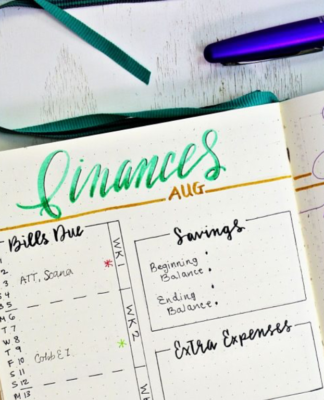 Finances
AUG
Bills Due
1
2 ATT, Scana
3
S 4
S 5
M 6
T 7
W 8
T 9
F 10
S 11
S 12
M 13
WK 1
WK 2
Savings
Beginning
Balance:
Ending
Balance:
Extra Expenses